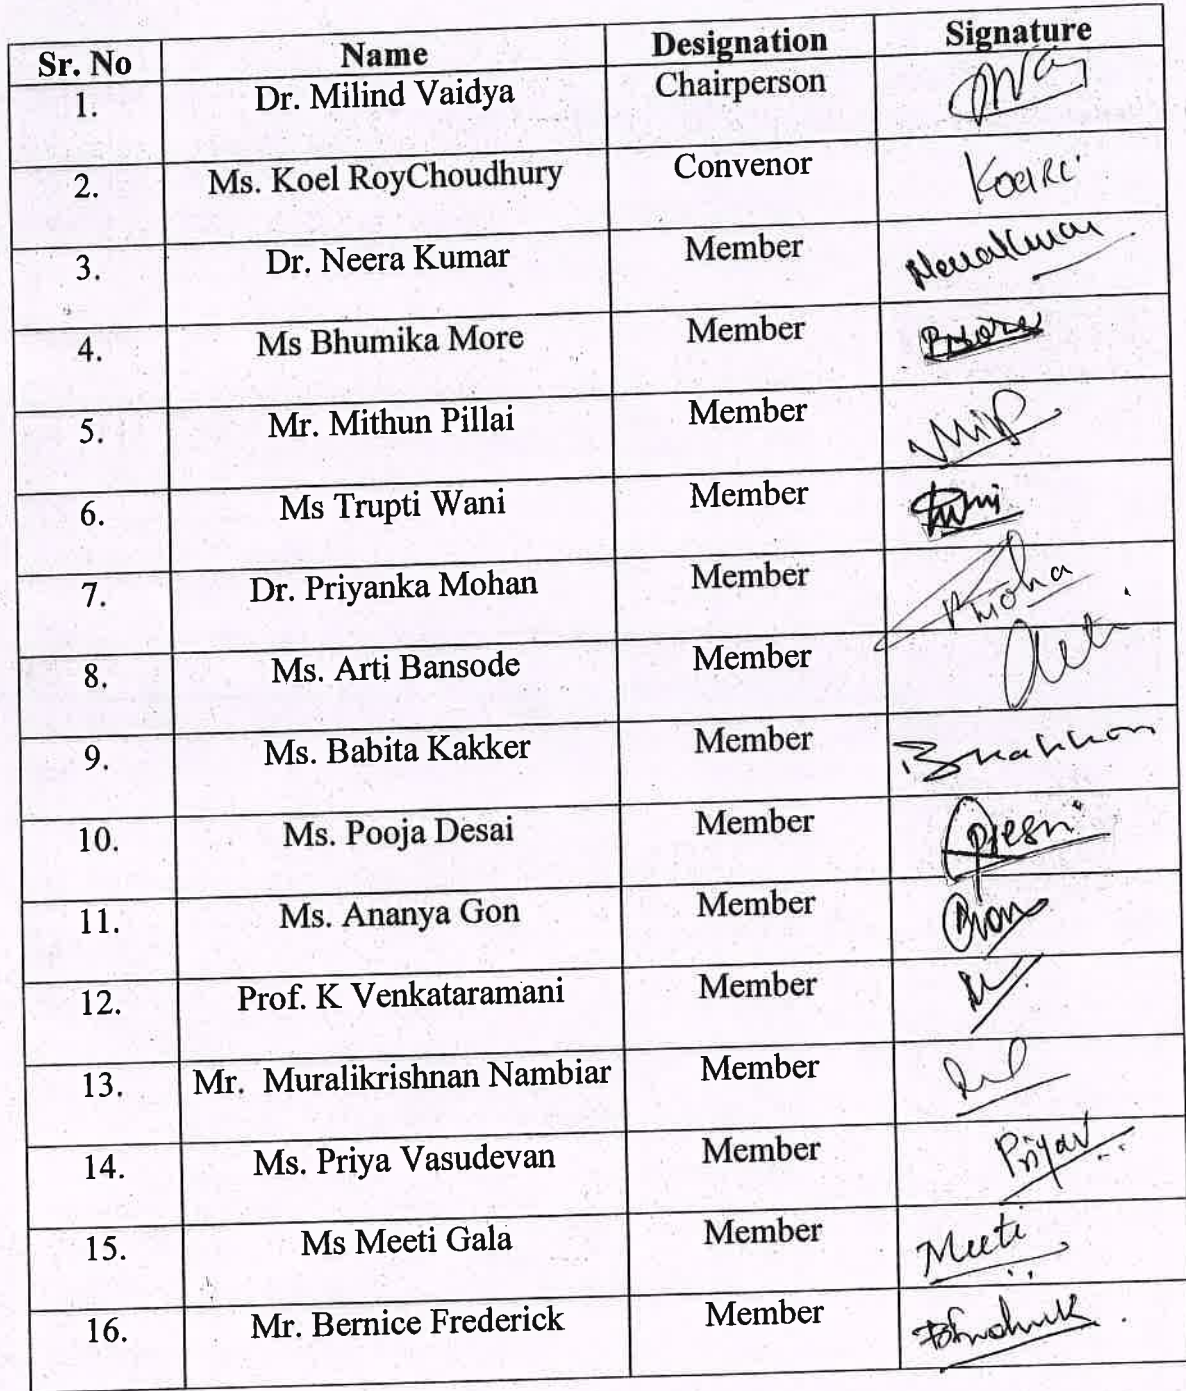 Sr. No Name Designation Signature
1. Dr. Milind Vaidya Chairperson
2. Ms. Koel RoyChoudhury Convenor KoelRC
3. Dr. Neera Kumar Member NeeraKumar
4. Ms Bhumika More Member
5. Mr. Mithun Pillai Member
6. Ms Trupti Wani Member
7. Dr. Priyanka Mohan Member
8. Ms. Arti Bansode Member
9. Ms. Babita Kakker Member
10. Ms. Pooja Desai Member
11. Ms. Ananya Gon Member
12. Prof. K Venkataramani Member
13. Mr. Muralikrishnan Nambiar Member
14. Ms. Priya Vasudevan Member PriyaV
15. Ms Meeti Gala Member Meeti
16. Mr. Bernice Frederick Member